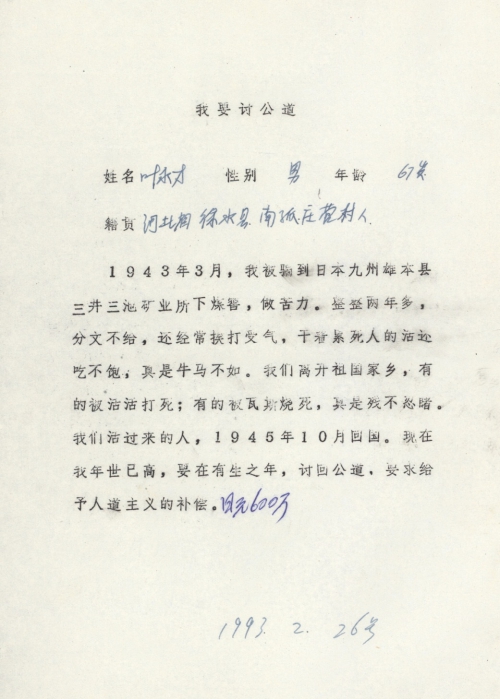 我要讨公道
姓名 叶永才 性别 男 年龄 67岁
籍贯 河北省 徐水县 南孤庄营村人
1943年3月，我被骗到日本九州雄本县
三井三池矿业所下煤窑，做苦力。整整两年多，
分文不给，还经常挨打受气，干着累死人的活还
吃不饱，真是牛马不如。我们离开祖国家乡，有
的被活活打死；有的被瓦斯烧死，真是残不忍睹。
我们活过来的人，1945年10月回国。现在
我年世已高，要在有生之年，讨回公道，要求给
予人道主义的补偿。日元600万
1993. 2. 26号